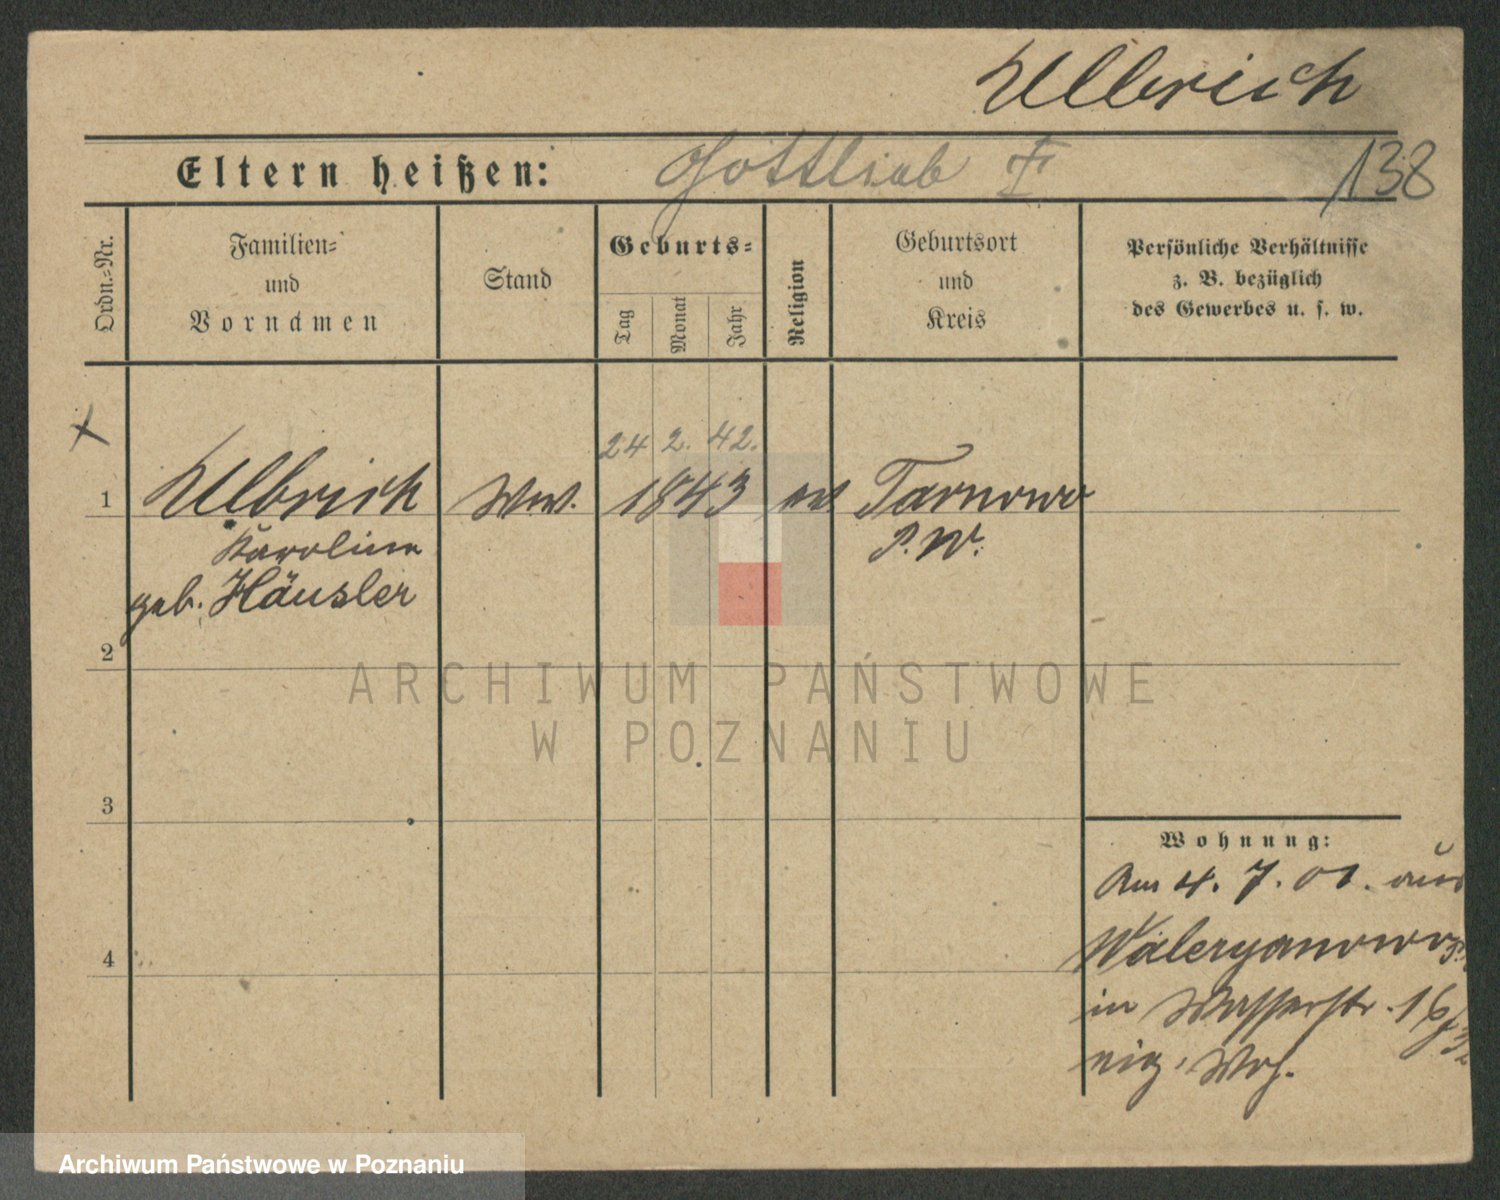 Ulbrich
Eltern heißen: Gottlieb
138
Ordn.=Nr.
Familien=
und
Vornamen
Stand
Geburts=
Tag
Monat
Jahr
Religion
Geburtsort
und
Kreis
Persönliche Verhältnisse
z. B. bezüglich
des Gewerbes u. s. w.
24 2. 42.
1 Ulbrich Ww. 1843 Tarnowo
Karolina P. W.
geb. Häusler
2
ARCHIWUM PAŃSTWOWE
W POZNANIU
3
Wohnung:
Am 4. 7. 01. aus
4
in Wasserstr. 16
Archiwum Państwowe w Poznaniu